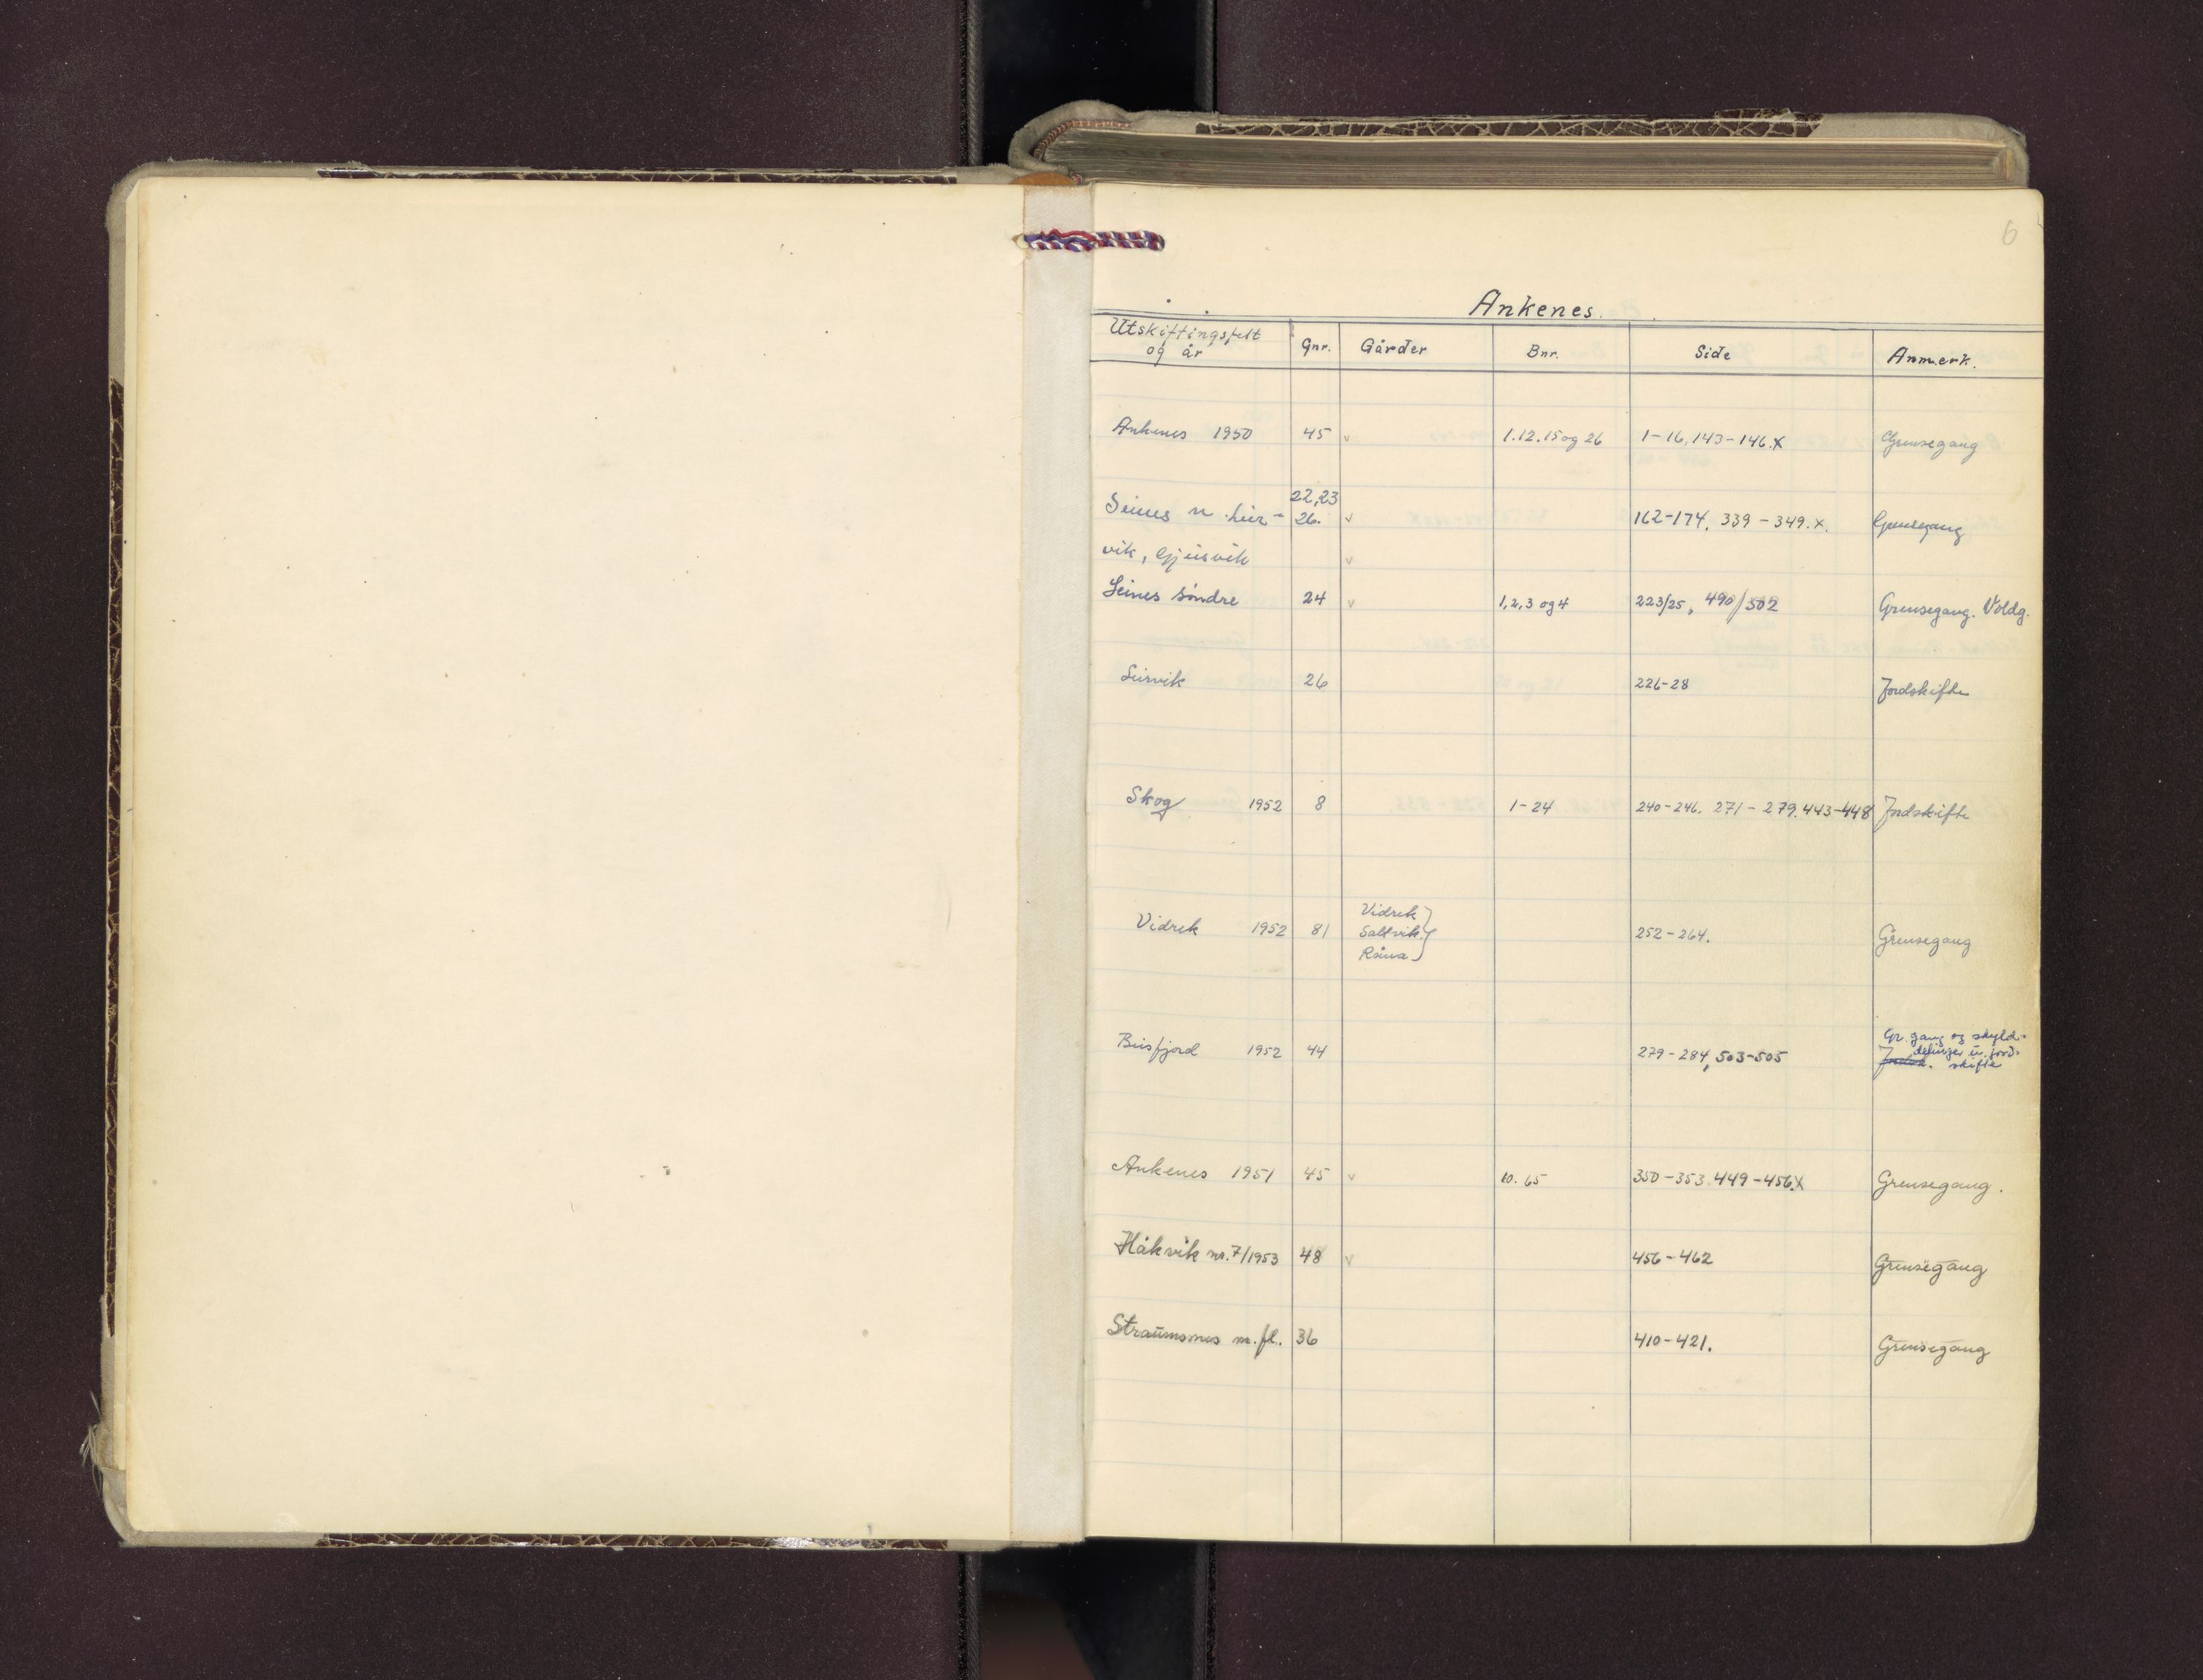 6
Ankenes.
Utskiftingsfelt og år Gnr. Gårder Bnr. Side Anmerk.
Ankenes 1950 45 v 1.12.15 og 26 1-16, 143-146.x Grensegang
22,23
Seines n. Leir- 26. v 162-174, 339-349.x. Grensegang
vik, Gjeisvik v
Seines søndre 24 v 1,2,3 og 4 223/25, 490/502 Grensegang. Voldg.
Leirvik 26 226-28 Jordskifte
Skog 1952 8 1-24 240-246. 271-279. 443-448 Jordskifte
Vidrek
Vidrek 1952 81 Saltvik 252-264. Grensegang
Råna
Gr. gang og skyld-
Beisfjord 1952 44 279-284, 503-505 delinger u. jord-
skifte
Ankenes 1951 45 v 10. 65 350-353 449-456.x Grensegang.
Håkvik nr. 7/1953 48 v 456-462 Grensegang
Straumsnes m.fl. 36 410-421. Grensegang